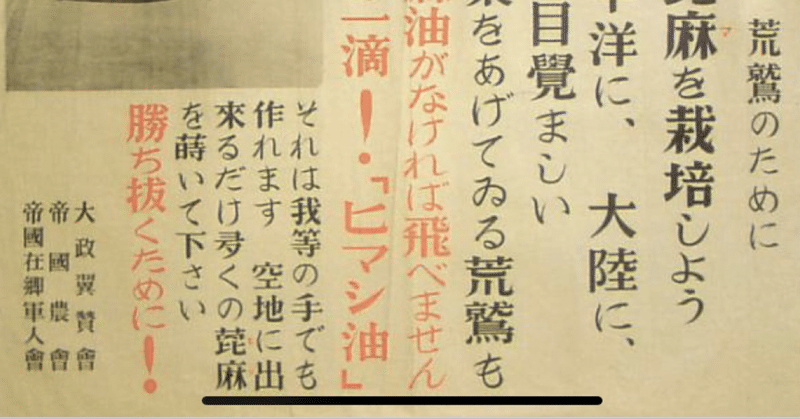 荒鷲のために
麻を栽培しよう
洋に、 大陸に、
目覺ましい
果をあげてゐる荒鷲も
油がなければ飛べません
一滴！・「ヒマシ油」
それは我等の手でも
作れます 空地に出
來るだけ夛くの蓖麻
を蒔いて下さい
勝ち抜くために！
大政翼贊會
帝國農會
帝國在郷軍人會